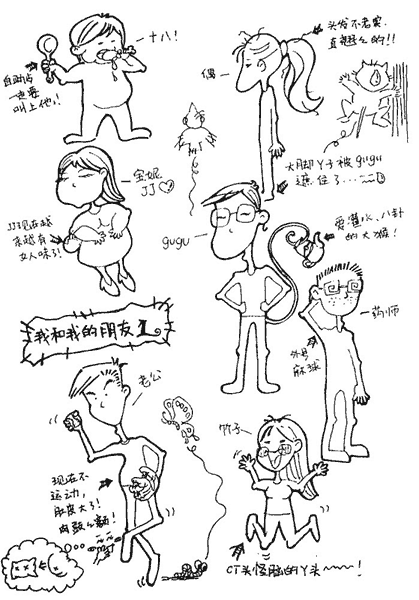 十八！
自助山
一定要
叫上他！！
头发不老实，
直翘么的！！
偶
大脚丫子被gugu
遮住了…~~
宝妮
JJ♡
JJ现在越
来越有
女人味了！
gugu
爱灌水、八卦
的大猴！
我和我的朋友1
药师
外号
麻球
老公
现在不
运动，
肚皮大了！
肉颤么颤！
竹子
CT头怪脑的丫头~~~！